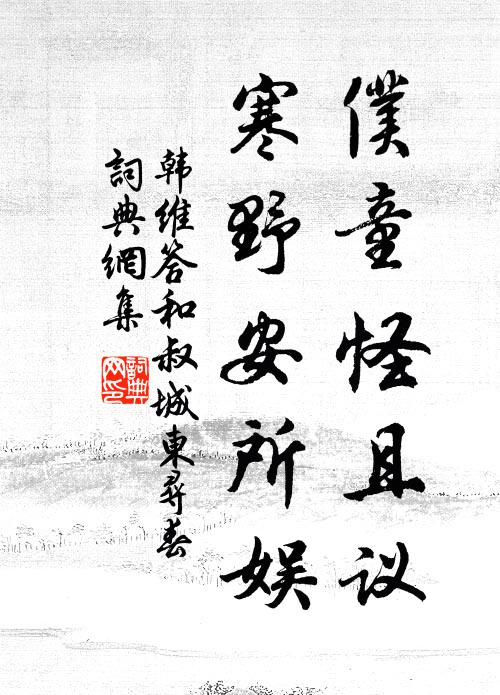 僕童怪且议
寒野安所娱
韩维答和叔城東尋春
詞典網集
詞典網印